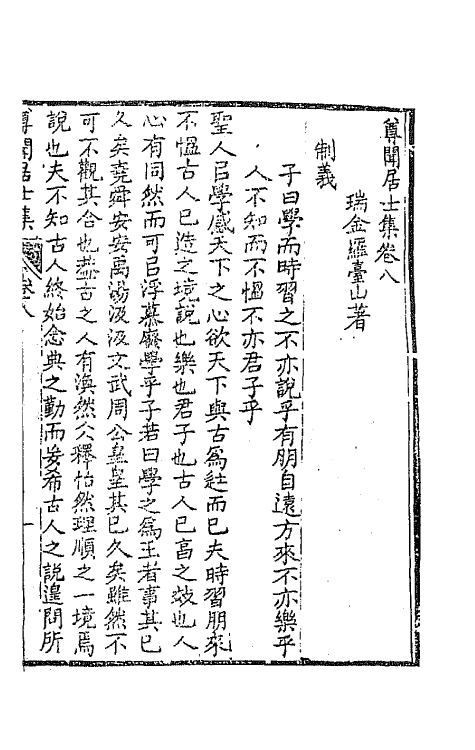 尊聞居士集卷八
瑞金羅臺山著
制義
子曰學而時習之不亦說乎有朋自遠方來不亦樂乎
人不知而不慍不亦君子乎
聖人㠯學感天下之心欲天下與古爲徒而已夫時習朋來
不慍古人已造之境說也樂也君子也古人已高之效也人
心有同然而可㠯浮慕廢學乎子若曰學之爲王者事其已
久矣堯舜安安禹湯汲汲文武周公皇皇其已久矣雖然不
可不觀其合也葢古之人有渙然久釋怡然理順之一境焉
說也夫不知古人終始念典之勤而妄希古人之說遑問所
尊聞居士集 卷八 一